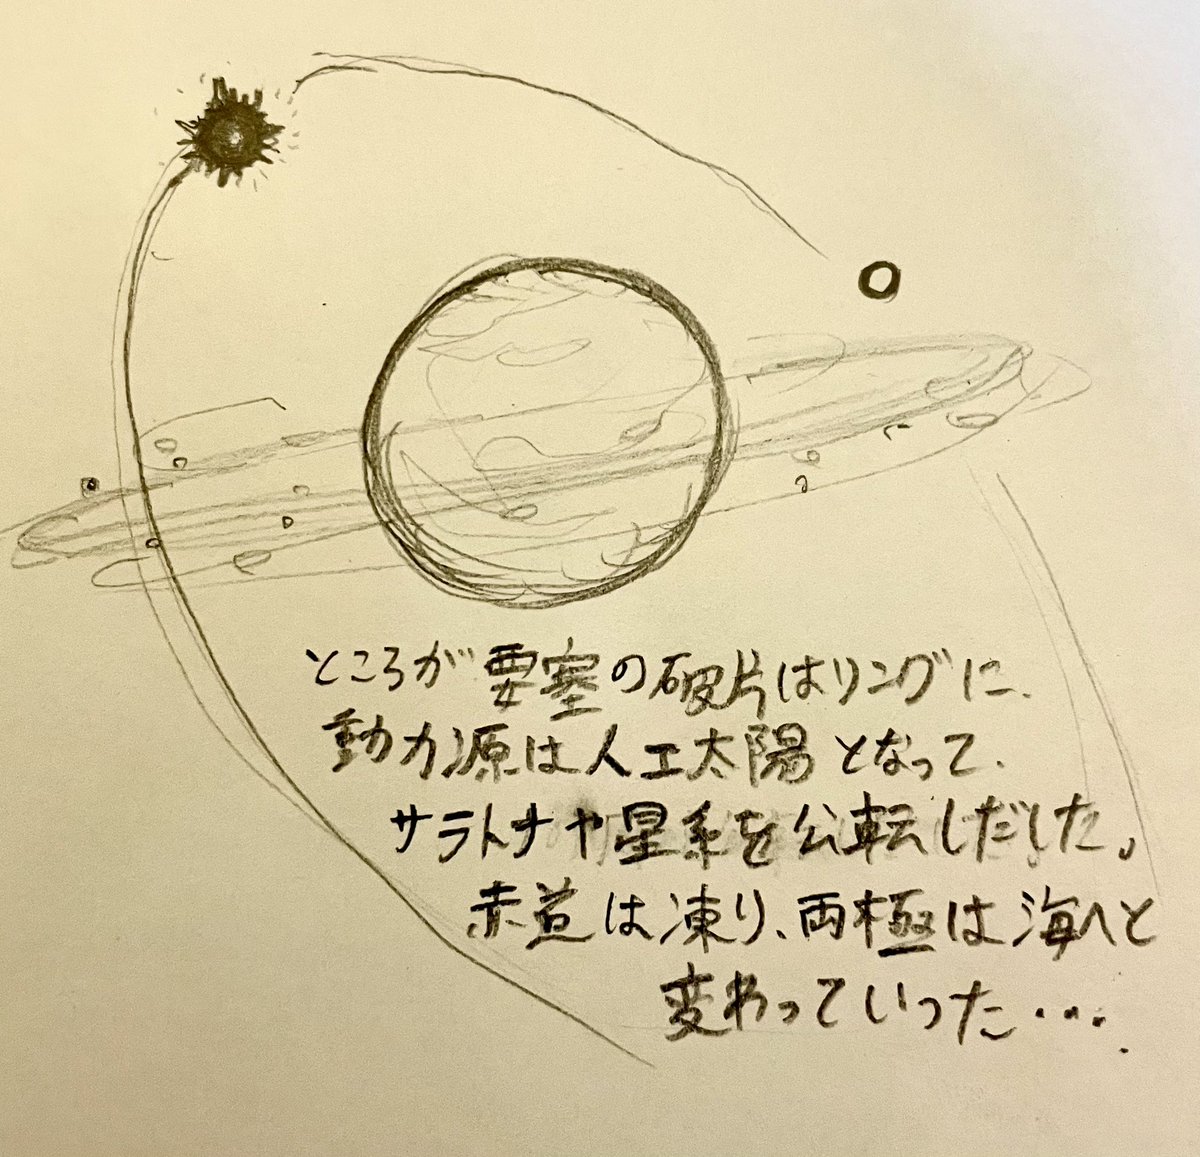 ところが要塞の破片はリングに、
動力源は人工太陽となって、
サラトナヤ星系を公転しだした。
赤道は凍り、両極は海へと
変わっていった・・・・